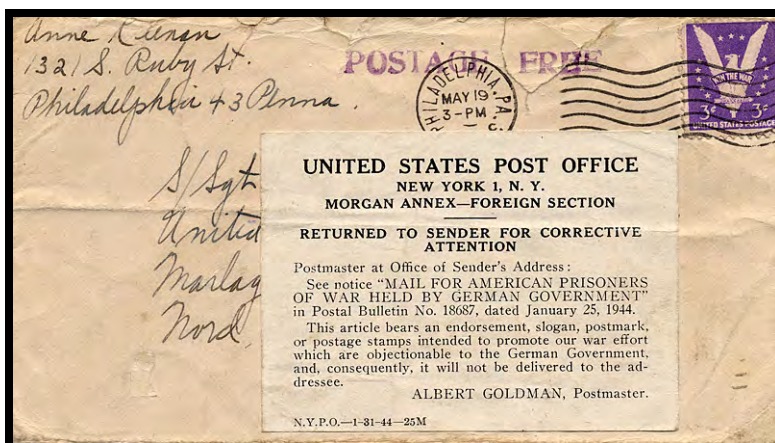 Anne Keenan
1321 S. Ruby St.
Philadelphia 43 Penna.
POSTAGE FREE
PHILADELPHIA, PA.
MAY 19
3-PM
WIN THE WAR
3¢ 3¢
UNITED STATES POSTAGE
S/Sgt
United
Marlag
Nord,
UNITED STATES POST OFFICE
NEW YORK 1, N. Y.
MORGAN ANNEX—FOREIGN SECTION
RETURNED TO SENDER FOR CORRECTIVE
ATTENTION
Postmaster at Office of Sender's Address:
See notice "MAIL FOR AMERICAN PRISONERS
OF WAR HELD BY GERMAN GOVERNMENT"
in Postal Bulletin No. 18687, dated January 25, 1944.
This article bears an endorsement, slogan, postmark,
or postage stamps intended to promote our war effort
which are objectionable to the German Government,
and, consequently, it will not be delivered to the ad-
dressee.
ALBERT GOLDMAN, Postmaster.
N.Y.P.O.—1-31-44—25M